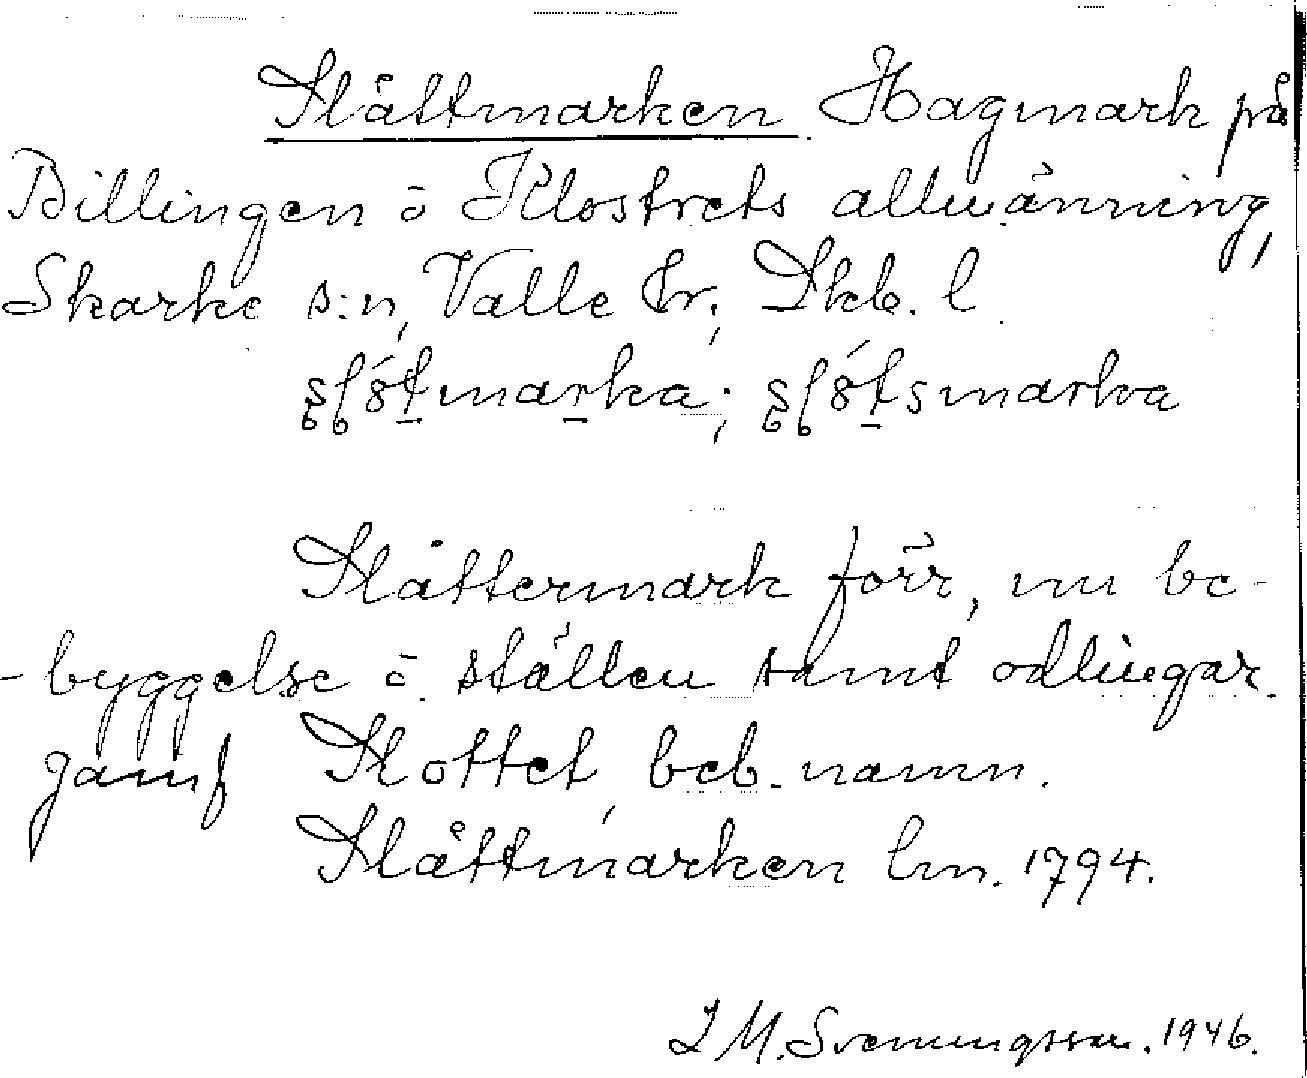 Slåttmarken. Hagmark på
Billingen å Klostrets allmänning,
Skarke s:n, Valle hr; Skb. l.
Slåttermark förr, nu be-
-byggelse å ställen samt odlingar.
Jämf Slottet, beb. namn.
Slåttmarken lm. 1794.
1946.